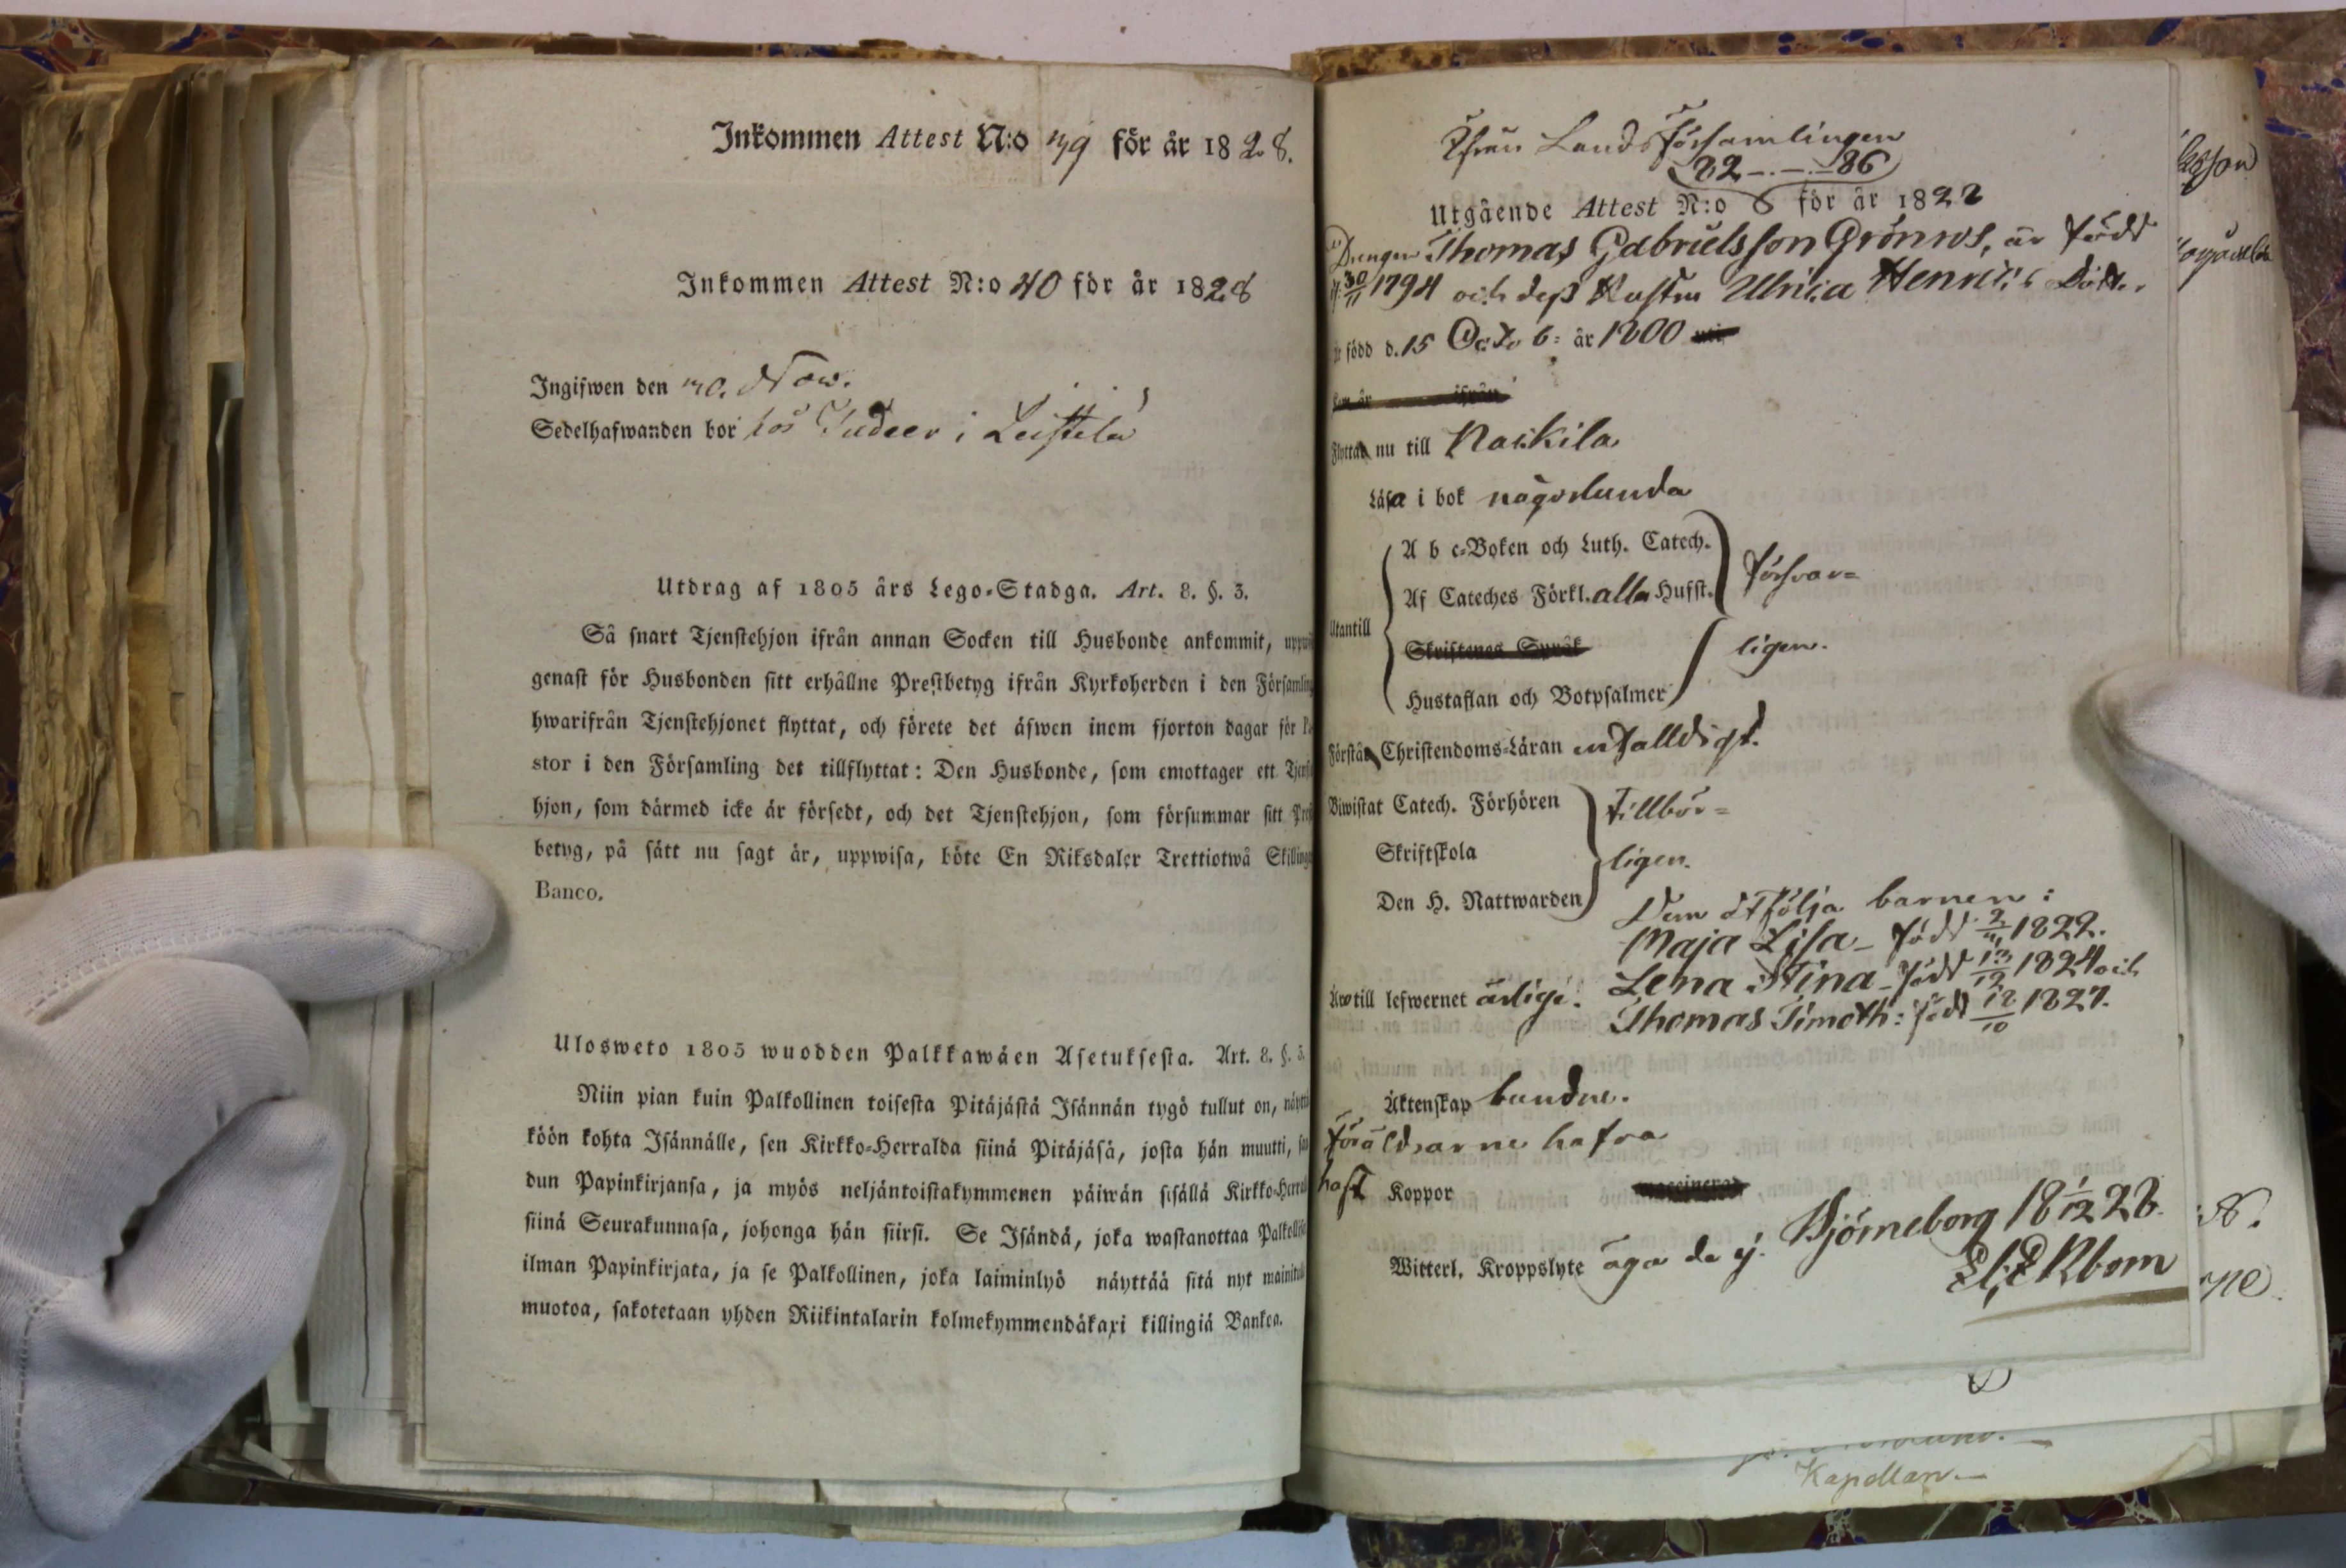 Inkommen Attest N:o 39 för år 1828.
Inkommen Attest N:o 40 för år 1828
Ingifwen den 30. Nov.
Sedelhafwanden bor hos Judeer i Leistelä
Utdrag af 1805 års Lego-Stadga. Art. 8. §. 3.
Så snart Tjenstehjon ifrån annan Socken till Husbonde ankommit,
genast för Husbonden sitt erhållne Prestbetyg ifrån Kyrkoherden i den Församling
hwarifrån Tjenstehjonet flyttat, och förete det äfwen inom fjorton dagar för
stor i den Församling det tillflyttat: Den Husbonde, som emottager ett Tjenste
hjon, som därmed icke är försedt, och det Tjenstehjon, som försummar sitt Prest
betyg, på sätt nu sagt är, uppwisa, böte En Riksdaler Trettiotwå Skillingar
Banco.
Ulosweto 1805 wuodden Palkkawäen Asetuksesta. Art. 8. §. 3.
Niin pian kuin Palkollinen toisesta Pitäjästä Isännän tygö tullut on, näyttä
köön kohta Isännälle, sen Kirkko-Herralda siinä Pitäjäsä, josta hän muutti, saa
dun Papinkirjansa, ja myös neljäntoistakymmenen päiwän sisällä Kirkko-Herralle
siinä Seurakunnasa, johonga hän siirsi. Se Isändä, joka wastanottaa Palkollisen
ilman Papinkirjata, ja se Palkollinen, joka laiminlyö näyttää sitä nyt mainitulla
muotoa, sakotetaan yhden Riikintalarin kolmekymmendäkaxi killingiä Bankoa.
Ifrån Landsförsamlingen
82 —.—.— 86
Utgående Attest N:o 8 för år 1828
Drengen Thomas Gabrielsson Grönros, är född
d. 30/11 1794 och dess Hustru Ulrica Henrics Dotter,
är född d. 15 Octob: år 1800
Flytta nu till Naskila
Läsa i bok någorlunda
Utantill
A b c-Boken och Luth. Catech.
Af Cateches Förkl. alla Hufst.
försvar=
Skriftenes Språk
ligen.
Hustaflan och Botpsalmer
Förstå Christendoms-Läran enfalldigt.
Biwistat Catech. Förhören
tillbör=
Skriftskola
ligen.
Den H. Nattwarden
Dem åtfölja barnen:
Maja Lisa - född 2/4 1822.
Lena Stina - född 13/12 1824 och
Thomas Timoth: född 12/10 1827.
Äro till lefwernet ärlige.
Äktenskap bundne.
Föräldrarne hafva
haft Koppor
Witterl. Kroppslyte äga de ej. Björneborg 18 1/12 28.
El; Ekbom
Kapellan.